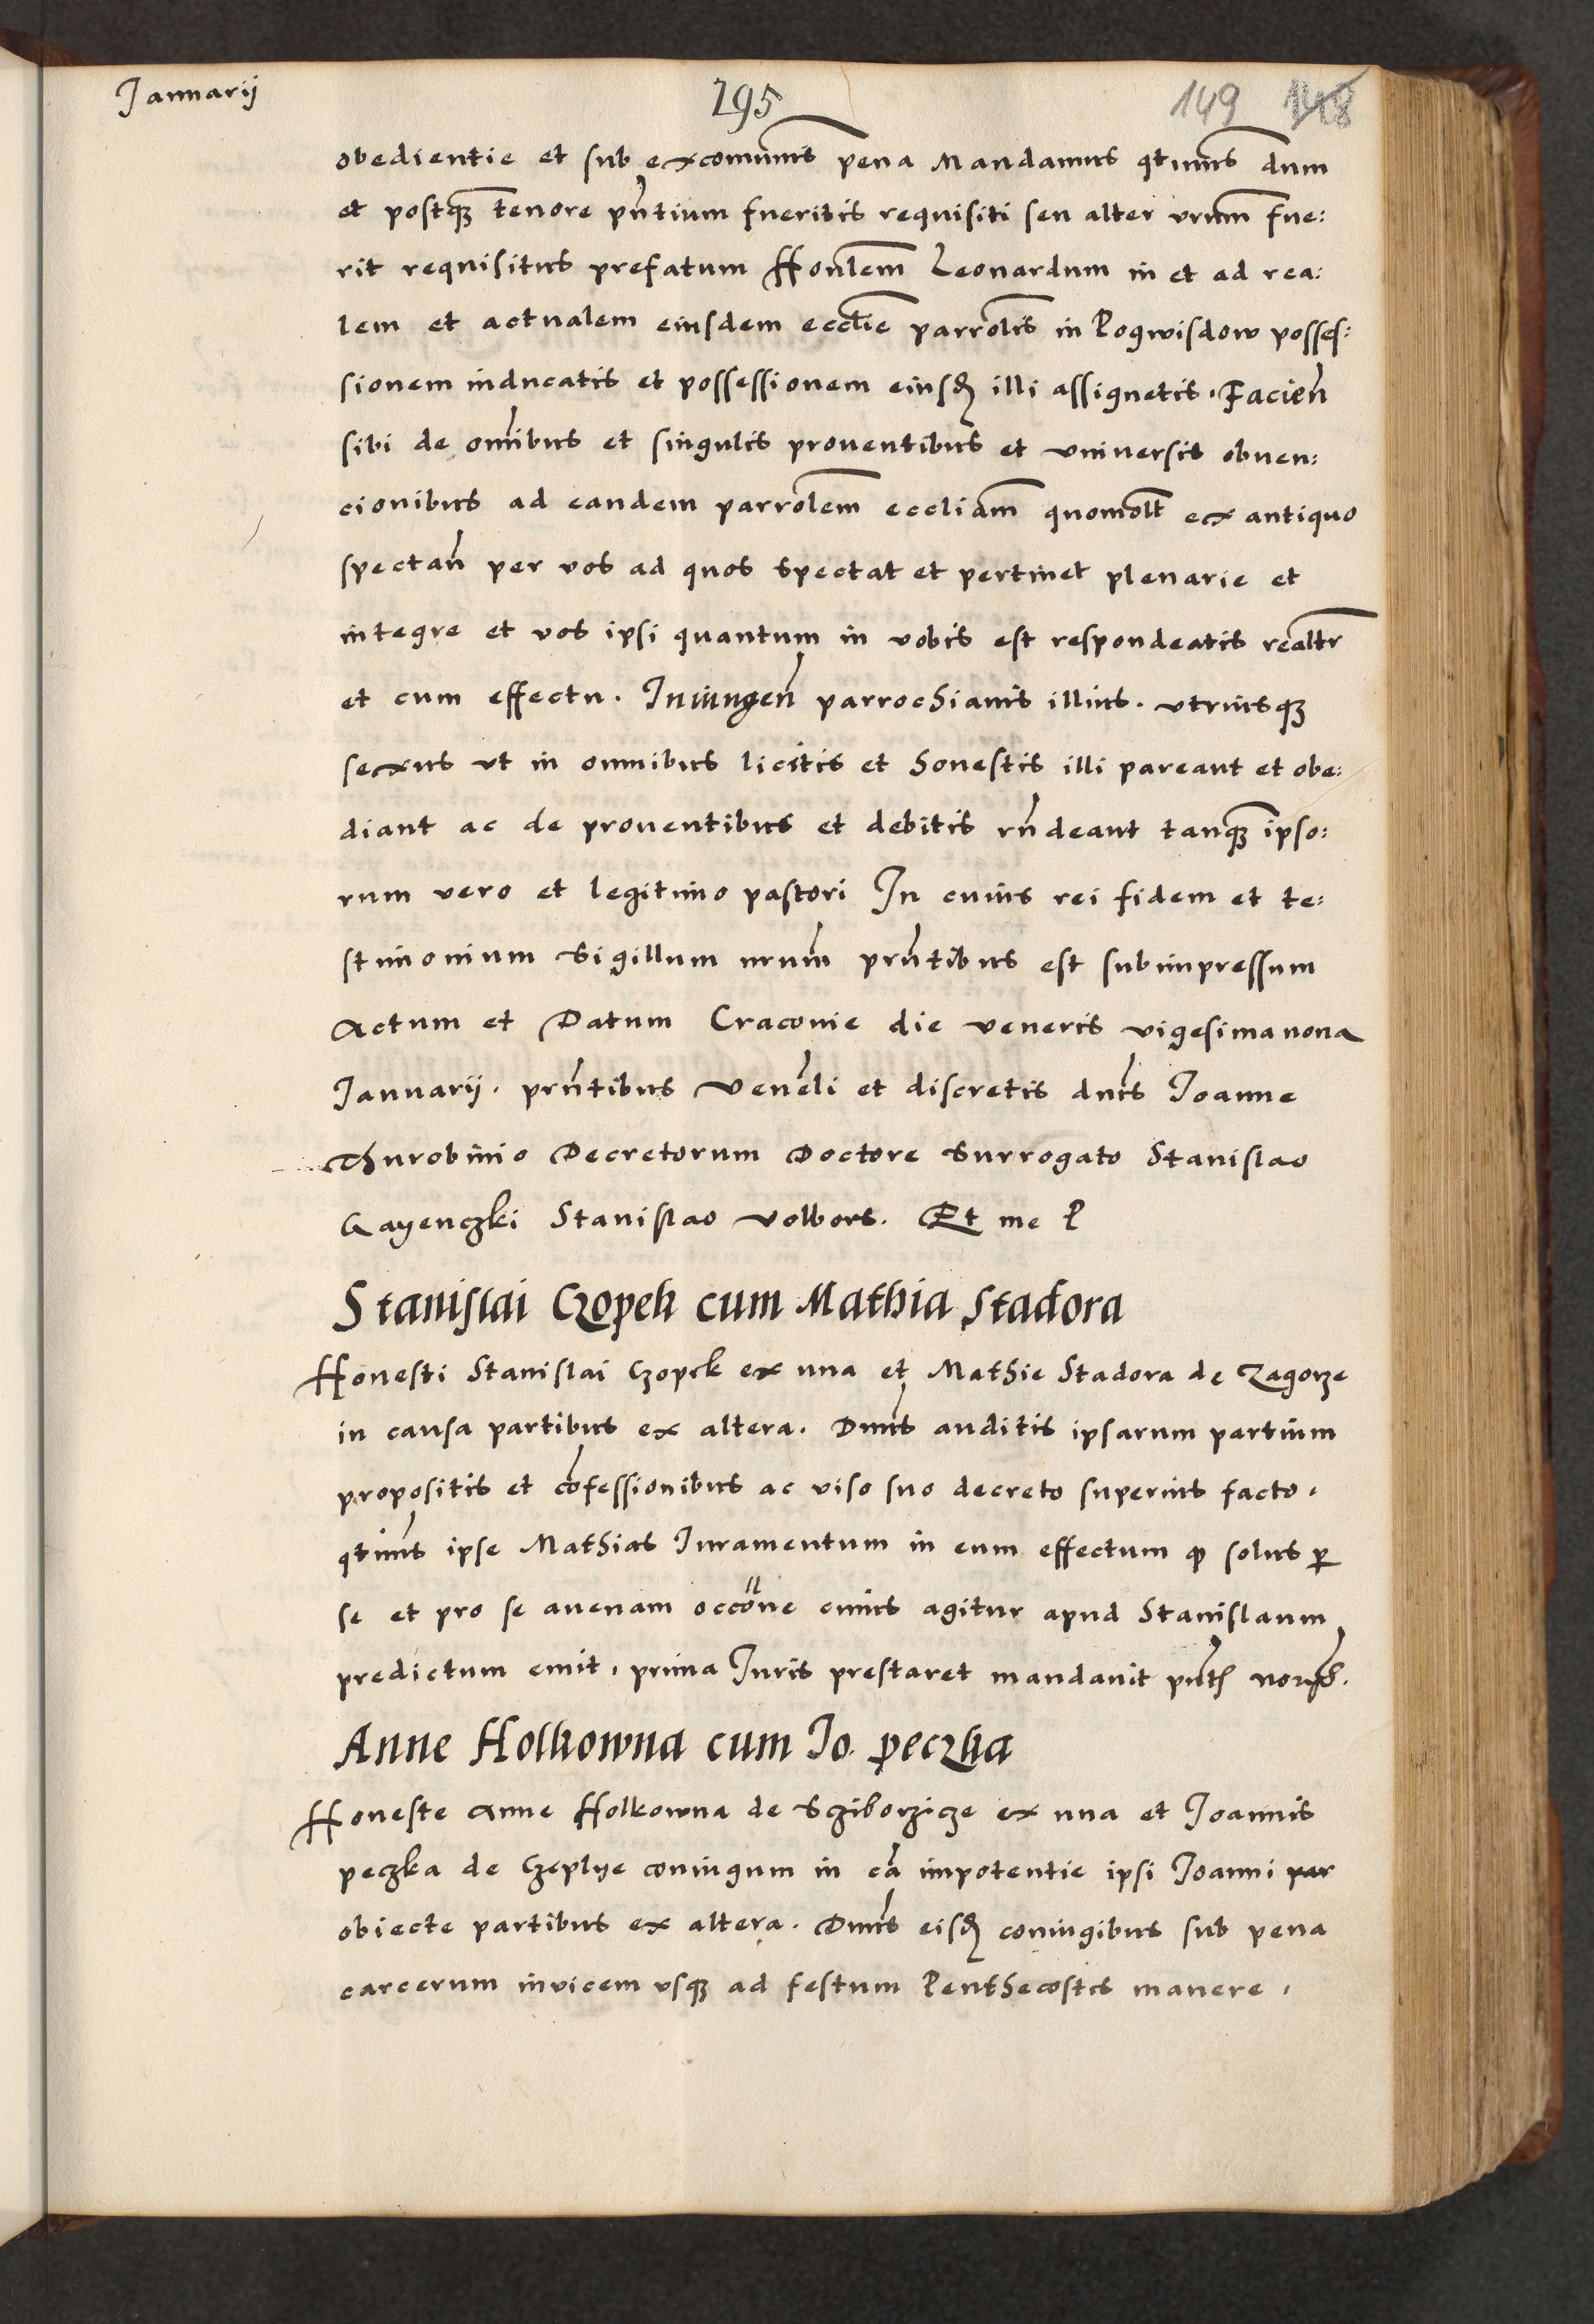 Januarij
195
149 148
obedientie et sub excomunis pena Mandamus qtinus dum
et postq3 tenore pntium fueritis requisiti seu alter vrum fue:
rit requisitus prefatum Honlem Leonardum in et ad rea:
lem et actualem eiusdem ecctie parrolis in Pogwisdow posses:
sionem inducatis et possessionem eiusd illi assignetis. Facien
sibi de omibus et singulis prouentibus et vniuersis obuen:
cionibus ad eandem parrolem eccliam quomolt ex antiquo
spectan per vos ad quos spectat et pertinet plenarie et
integre et vos ipsi quantum in vobis est respondeatis realtr
et cum effectu. Iniungen parrochianis illius. vtriusq3
sexus vt in omnibus licitis et honestis illi pareant et obe:
diant ac de prouentibus et debitis rndeant tanq3 ipso:
rum vero et legitimo pastori In cuius rei fidem et te:
stimonium Sigillum nrum prntibus est subimpressum
Actum et Datum Cracouie die veneris vigesimanona
Januarij. prntibus Venerli et discretis dnis Joanne
Thurobinio Decretorum Doctore Surrogato Stanislao
Gayenczki Stanislao volbors. Et me P
Stanislai Czopek cum Mathia Stadora
Honesti Stanislai Czopek ex una et Mathie Stadora de Zagorze
in causa partibus ex altera. Dnus auditis ipsarum partium
propositis et cofessionibus ac viso suo decreto superius facto.
qtinus ipse Mathias Iuramentum in eum effectum q solus p
se et pro se auenam occone cuius agitur apud Stanislaum
predictum emit, prima Iuris prestaret mandauit pntb
Anne Holkowna cum Io. peczka
Honeste Anne Holkowna de Sziborzicze ex una et Joannis
peczka de Czeplye coniugum in ca impotentie ipsi Joanni par
obiecte partibus ex altera. Dnus eisd coniugibus sub pena
carcerum inuicem vsq3 ad festum Penthecostis manere,